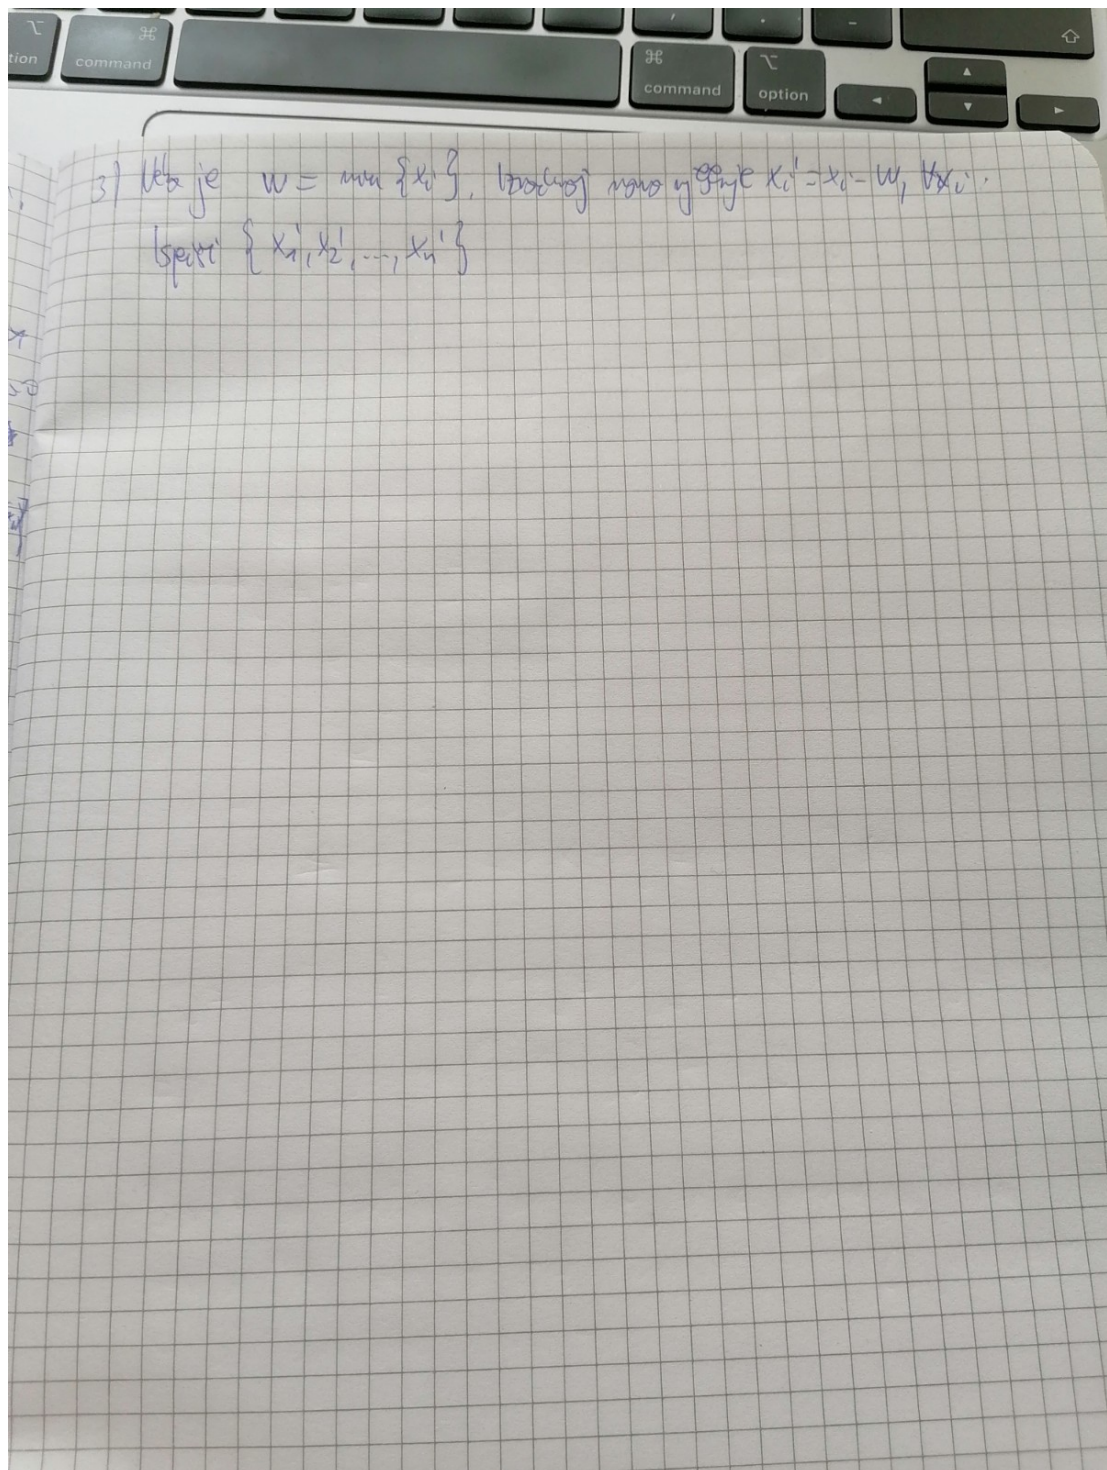 ⌥
tion
⌘
command
⌘
command
⌥
option
3) Neka je w = min {xi}. Izračunaj novo rješenje xi' = xi - w, ∀xi.
Ispiši {x1', x2', ..., xn'}